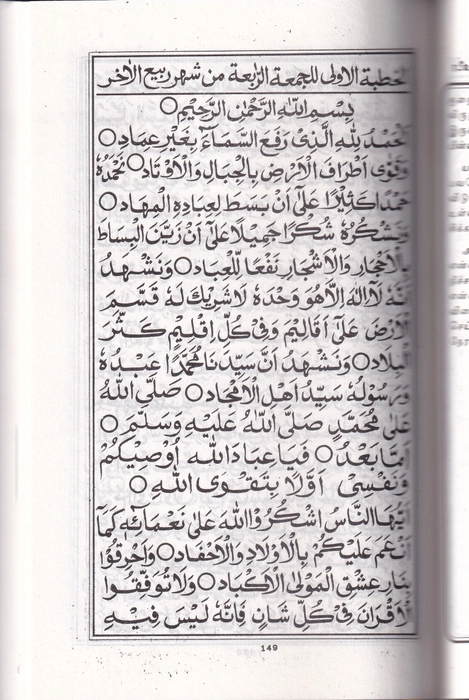 الخطبة الاولى للجمعة الرابعة من شهر ربيع الآخر
بِسْمِ اللهِ الرَّحْمٰنِ الرَّحِيْمِ○
اَلْحَمْدُ لِلّٰهِ الَّذِىْ رَفَعَ السَّمَاءَ بِغَيْرِ عِمَادٍ○
وَقَوّٰى اَطْرَافَ الْاَرْضِ بِالْجِبَالِ وَالْاَوْتَادِ○ نَحْمَدُهٗ
حَمْدًا كَثِيْرًا عَلٰى اَنْ بَسَطَ لِعِبَادِهِ الْمِهَادَ○
وَنَشْكُرُهٗ شُكْرًا جَمِيْلًا عَلٰى اَنْ زَيَّنَ الْبِسَاطَ
بِالْاَحْجَارِ وَالْاَشْجَارِ نَفْعًا لِّلْعِبَادِ○ وَنَشْهَدُ
اَنَّهٗ لَآ اِلٰهَ اِلَّا هُوَ وَحْدَهٗ لَا شَرِيْكَ لَهٗ قَسَّمَ
الْاَرْضَ عَلٰى اَقَالِيْمَ وَفِىْ كُلِّ اِقْلِيْمٍ كَثَّرَ
الْبِلَادَ○ وَنَشْهَدُ اَنَّ سَيِّدَنَا مُحَمَّدًا عَبْدُهٗ
وَرَسُوْلُهٗ سَيِّدُ اَهْلِ الْاَمْجَادِ○ صَلَّى اللهُ
عَلٰى مُحَمَّدٍ صَلَّى اللهُ عَلَيْهِ وَسَلَّمَ○
اَمَّا بَعْدُ○ فَيَا عِبَادَ اللهِ اُوْصِيْكُمْ
وَنَفْسِىْ اَوَّلًا بِتَقْوَى اللهِ○
اَيُّهَا النَّاسُ اشْكُرُوا اللهَ عَلٰى نَعْمَائِهٖ كَمَا
اَنْعَمَ عَلَيْكُمْ بِالْاَوْلَادِ وَالْاَحْفَادِ○ وَاحْرِقُوْا
بِنَارِ عِشْقِ الْمَوْلَى الْاَكْبَادَ○ وَلَا تُوَفِّقُوا
الْاَقْرَانَ فِىْ كُلِّ شَانٍ فَاِنَّهٗ لَيْسَ فِيْهِ
149